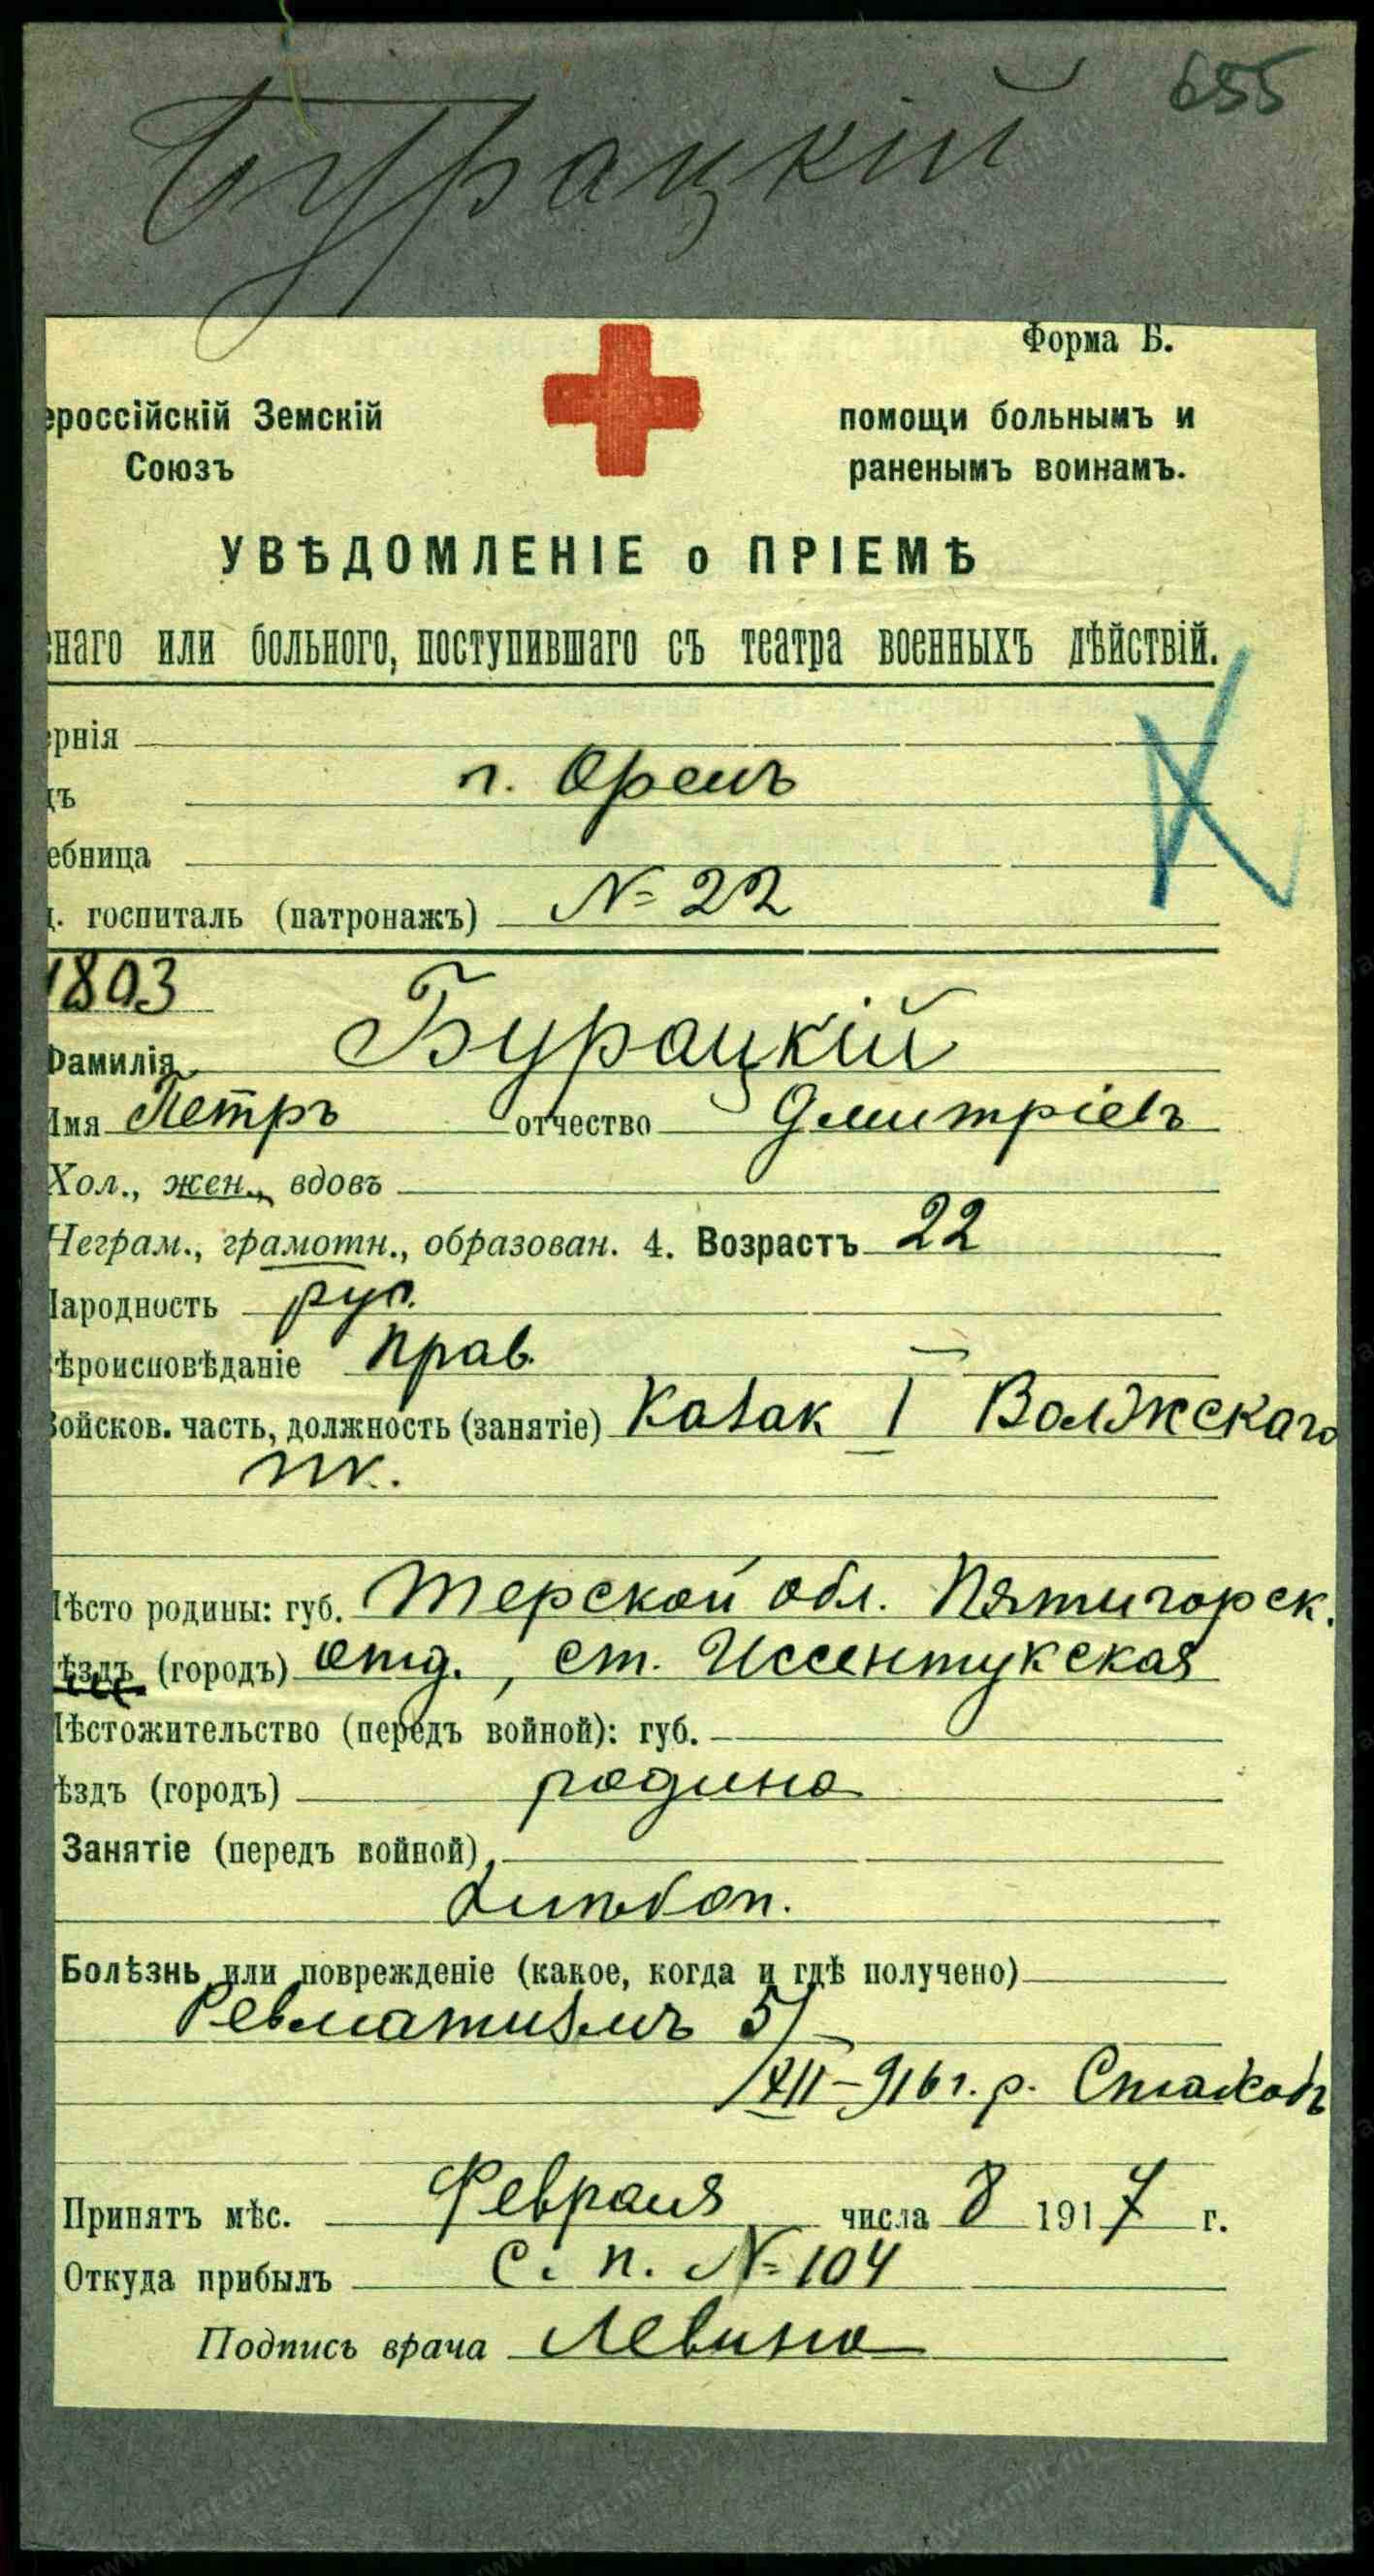 655
Бурацкій
Форма Б.
ероссійскій Земскій
помощи больнымъ и
Союзъ
раненымъ воинамъ.
УВѢДОМЛЕНІЕ о ПРІЕМѢ
наго или больного, поступившаго съ театра военныхъ дѣйствій.
рнія
г. Орелъ
ъ
ебница
. госпиталь (патронажъ) № 22
1803
Фамилія Бурацкій
Имя Петръ отчество Дмитріевъ
Хол., жен., вдовъ
Неграм., грамотн., образован. 4. Возрастъ 22
Народность рус.
ѣроисповѣданіе прав.
Войсков. часть, должность (занятіе) Казак I Волжскаго
пк.
Мѣсто родины: губ. Терской обл. Пятигорск.
ѣздъ (городъ) отд., ст. Иссентукская
Мѣстожительство (передъ войной): губ.
ѣздъ (городъ) родина
Занятіе (передъ войной)
хлѣбоп.
Болѣзнь или поврежденіе (какое, когда и гдѣ получено)
Ревматизмъ 5/
/XII-916 г. р.
Принятъ мѣс. Февраля числа 8 1917 г.
Откуда прибылъ С. п. № 104
Подпись врача Левина